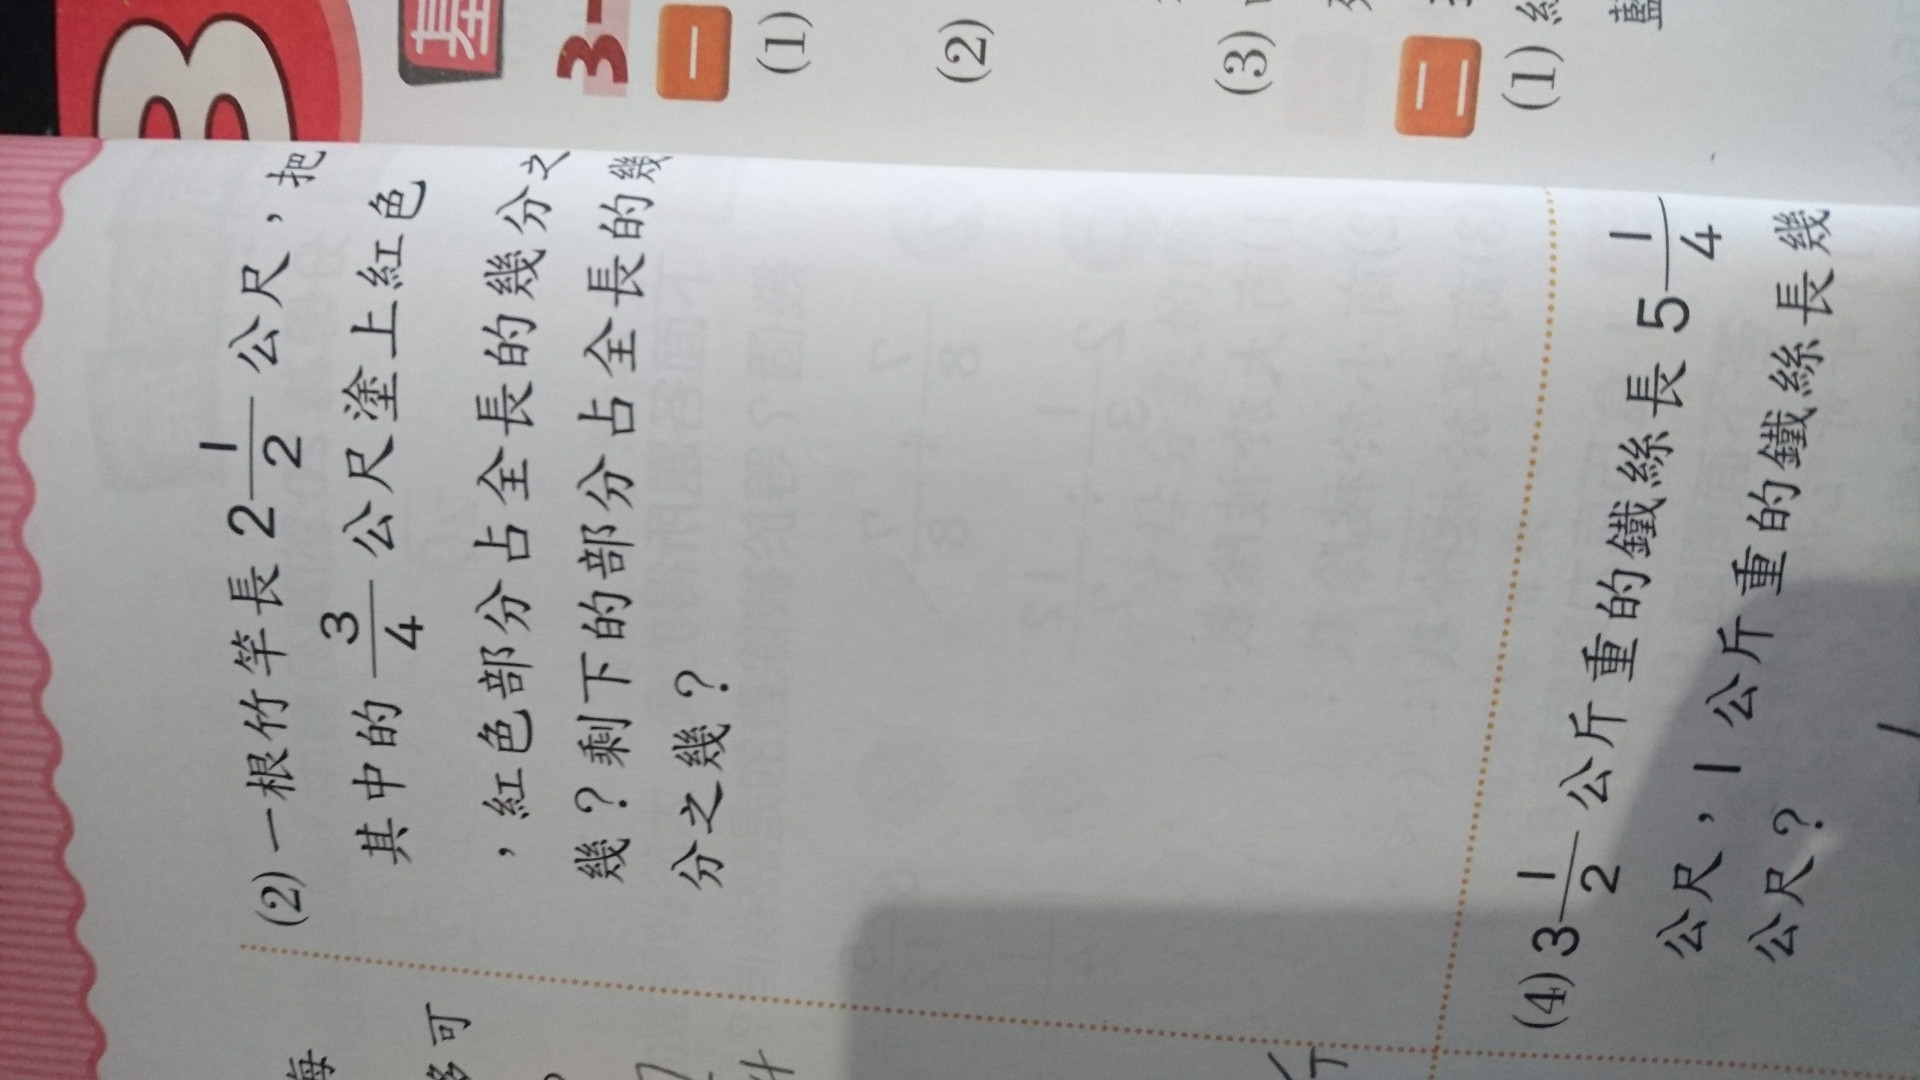 (2) 一根竹竿長 2 1/2 公尺，把
其中的 3/4 公尺塗上紅色
，紅色部分占全長的幾分之
幾？剩下的部分占全長的幾
分之幾？
(4) 3 1/2 公斤重的鐵絲長 5 1/4
公尺，1 公斤重的鐵絲長幾
公尺？
每
多可
3
基
3-
一
(1)
(2)
(3)
二
(1)
藍